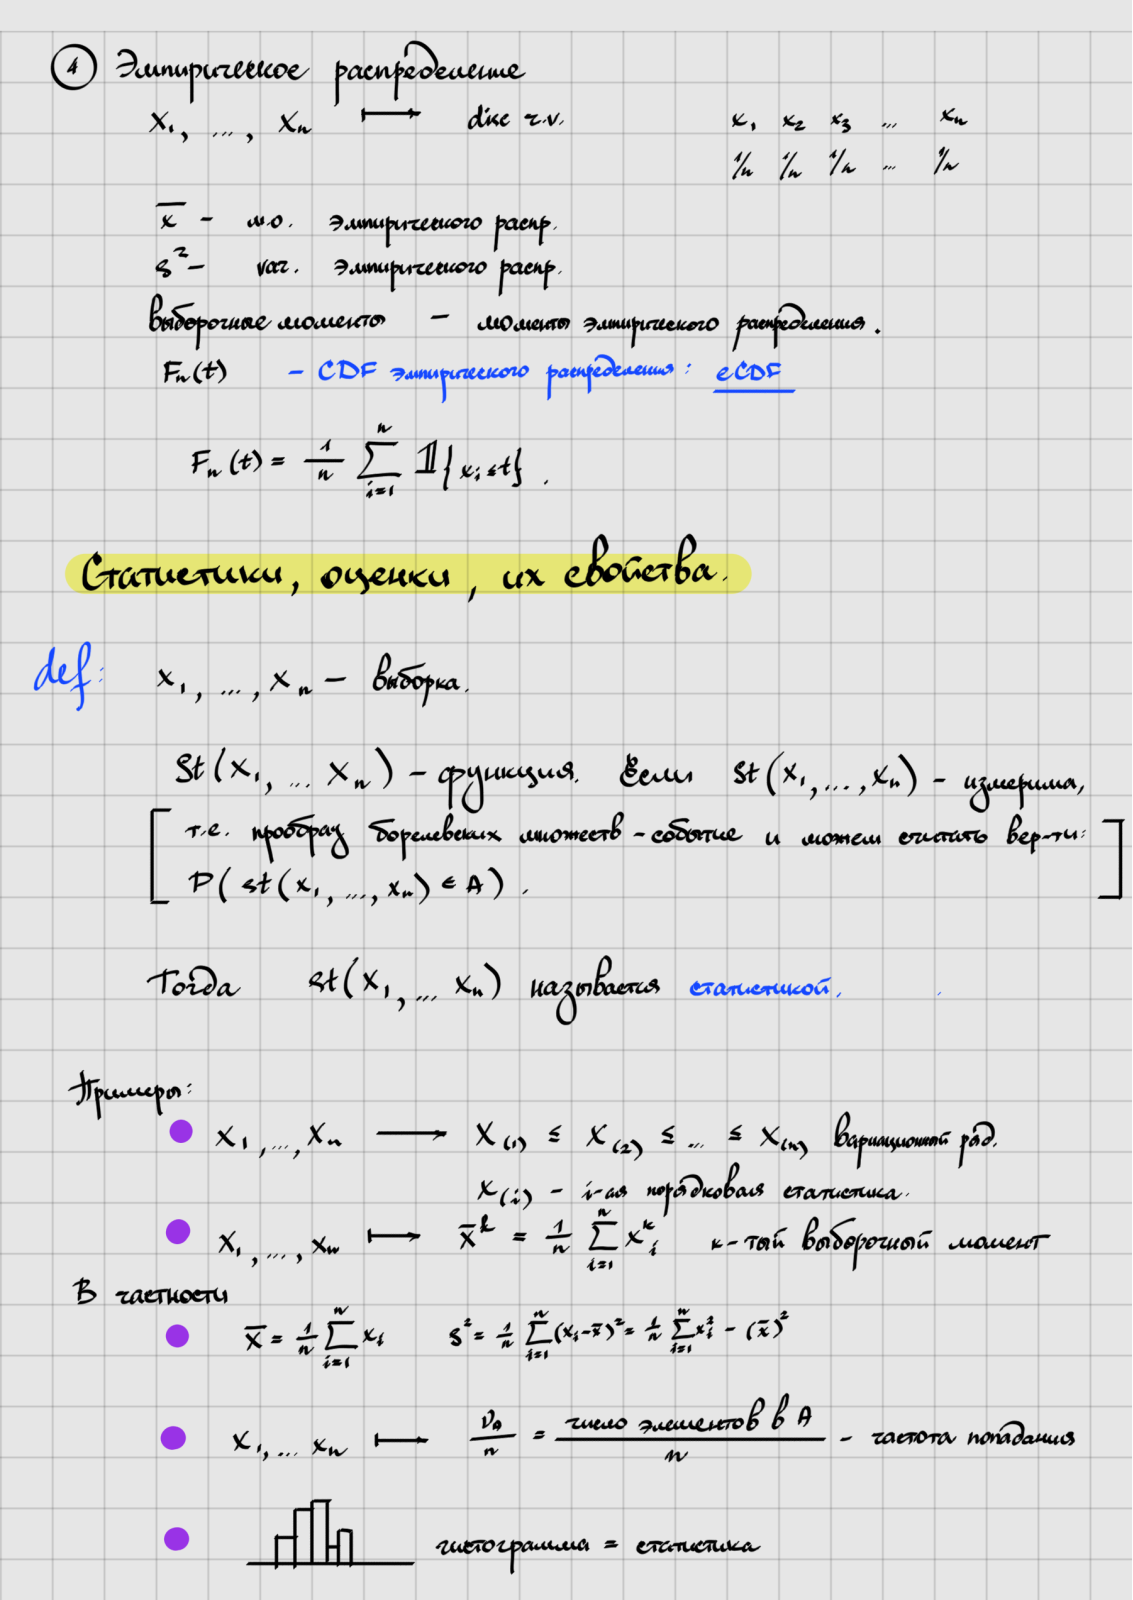 ④ Эмпирическое распределение
X₁, ..., Xₙ ⟼ disc r.v. x₁ x₂ x₃ ... xₙ
1/n 1/n 1/n ... 1/n
x̄ - м.о. эмпирического распр.
s² - var. эмпирического распр.
выборочные моменты - моменты эмпирического распределения.
Fₙ(t) - CDF эмпирического распределения: eCDF
Fₙ(t) = 1/n ∑ᵢ₌₁ⁿ 𝟙{xᵢ ≤ t}.
Статистики, оценки, их свойства.
def: X₁, ..., Xₙ - выборка.
St(X₁, ... Xₙ) - функция. Если St(X₁, ..., Xₙ) - измерима,
[ т.е. прообраз борелевских множеств - событие и можем считать вер-ти:
P(St(X₁, ..., Xₙ) ∈ A). ]
Тогда St(X₁, ... Xₙ) называется статистикой.
Примеры:
X₁, ..., Xₙ ⟶ X₍₁₎ ≤ X₍₂₎ ≤ ... ≤ X₍ₙ₎ вариационный ряд.
X₍ᵢ₎ - i-ая порядковая статистика.
X₁, ..., Xₙ ⟼ x̄ᵏ = 1/n ∑ᵢ₌₁ⁿ Xᵢᵏ к-тый выборочный момент
В частности
x̄ = 1/n ∑ᵢ₌₁ⁿ xᵢ s² = 1/n ∑ᵢ₌₁ⁿ (xᵢ - x̄)² = 1/n ∑ᵢ₌₁ⁿ xᵢ² - (x̄)²
X₁, ... Xₙ ⟼ ν_A/n = число элементов в A / n - частота попадания
гистограмма = статистика